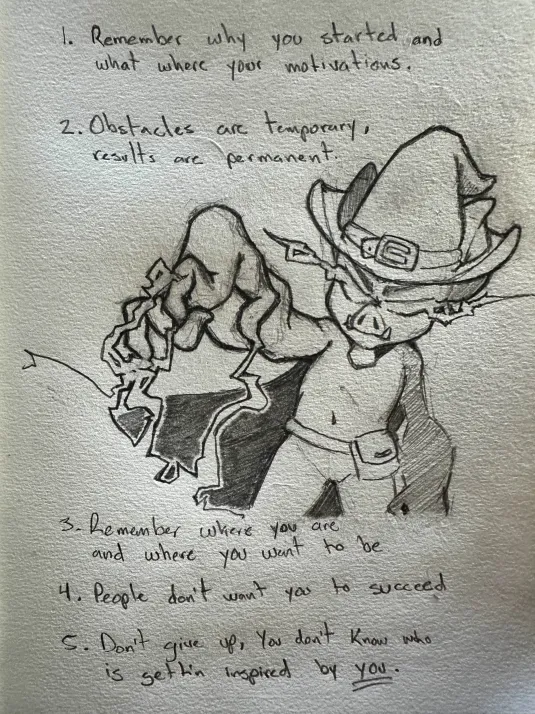 1. Remember why you started and
what where your motivations.
2. Obstacles are temporary,
results are permanent.
3. Remember where you are
and where you want to be
4. People don't want you to succeed
5. Don't give up, You don't know who
is gettin inspired by you.